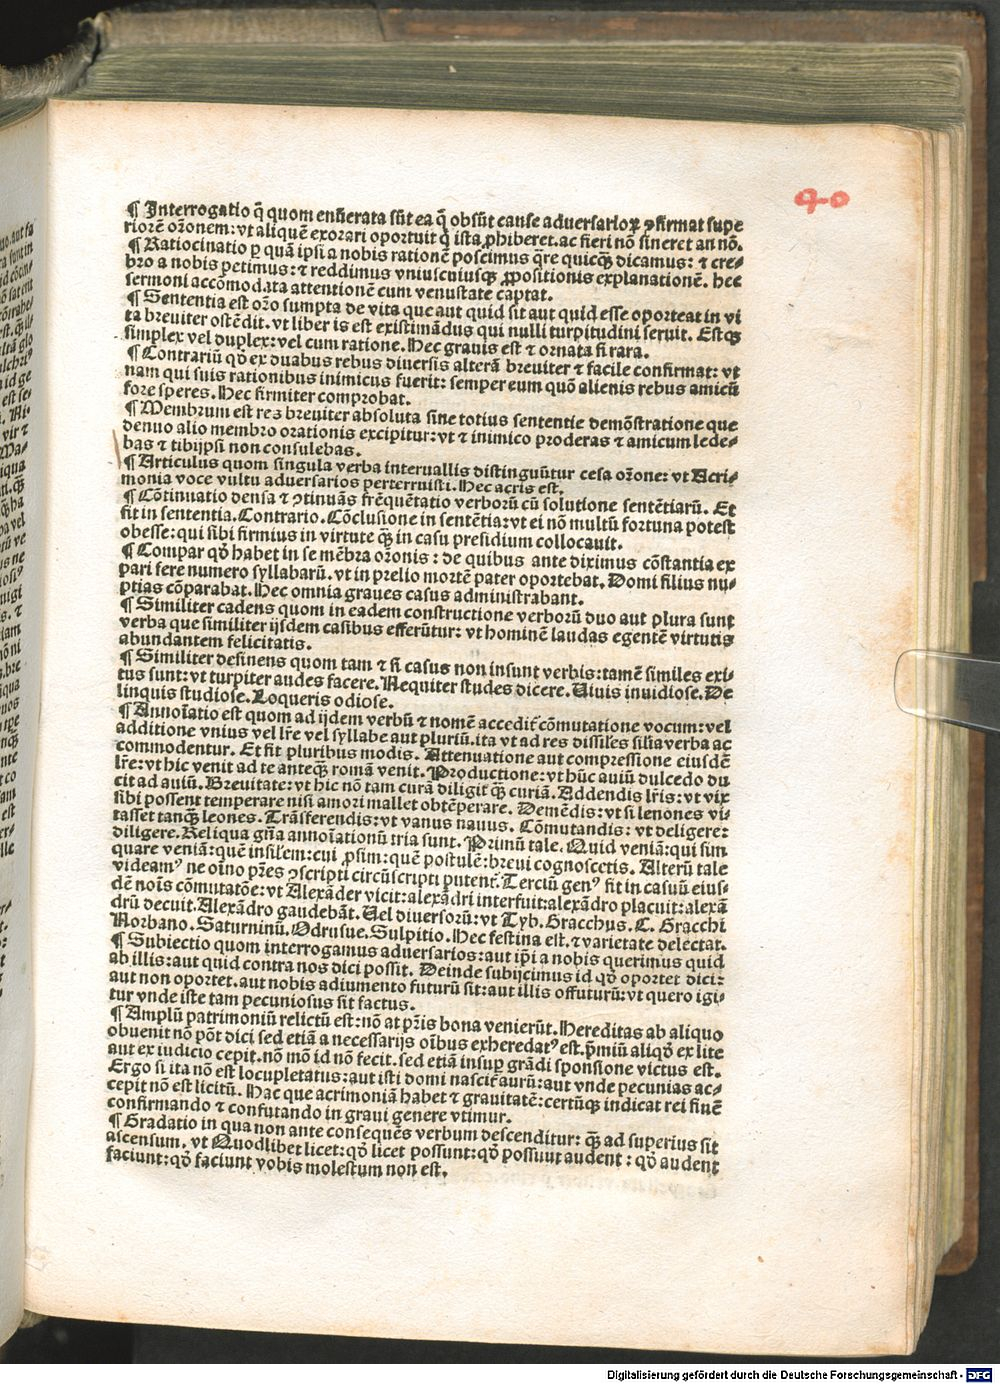 40
¶ Interrogatio q̄ quom enūerata sūt ea q̄ obsūt cause aduersarioꝝ ꝯfirmat supe
riorē orōnem: vt aliquē exorari oportuit q̇ ista ꝓhiberet. ac fieri nō sineret an nō.
¶ Ratiocinatio ꝑ quā ipsi a nobis rationē poscimus q̄re quicq̄ꝫ dicamus: ⁊ cre⸗
bro a nobis petimus: ⁊ reddimus vniuscuiusqꝫ ꝓpositionis explanationē. hec
sermoni accōmodata attentionē cum venustate captat.
¶ Sententia est orō sumpta de vita que aut quid sit aut quid esse oporteat in vi
ta breuiter ostēdit. vt liber is est existimādus qui nulli turpitudini seruit. Estqꝫ
simplex vel duplex: vel cum ratione. Hec grauis est ⁊ ornata si rara.
¶ Contrariū qd̄ ex duabus rebus diuersis alterā breuiter ⁊ facile confirmat: vt
nam qui suis rationibus inimicus fuerit: semper eum quō alienis rebus amicū
fore speres. Hec firmiter comprobat.
¶ Membrum est reꝫ breuiter absoluta sine totius sententie demōstratione que
denuo alio membro orationis excipitur: vt ⁊ inimico proderas ⁊ amicum lede⸗
bas ⁊ tibijpsi non consulebas.
¶ Articulus quom singula verba interuallis distinguūtur cesa orōne: vt Acri⸗
monia voce vultu aduersarios perterruisti. Hec acris est.
¶ Cōtinuatio densa ⁊ ꝯtinuās frēquētatio verborū cū solutione sentētiarū. Et
fit in sententia. Contrario. Cōclusione in sentētia: vt ei nō multū fortuna potest
obesse: qui sibi firmius in virtute q̄ꝫ in casu presidium collocauit.
¶ Compar qd̄ habet in se mēbra orōnis: de quibus ante diximus cōstantia ex
pari fere numero syllabarū. vt in prelio mortē pater oportebat. Domi filius nu⸗
ptias cōparabat. Hec omnia graues casus administrabant.
¶ Similiter cadens quom in eadem constructione verborū duo aut plura sunt
verba que similiter ijsdem casibus efferūtur: vt hominē laudas egentē virtutis
abundantem felicitatis.
¶ Similiter desinens quom tam ⁊ si casus non insunt verbis: tamē similes exi⸗
tus sunt: vt turpiter audes facere. Nequiter studes dicere. Uiuis inuidiose. De
linquis studiose. Loqueris odiose.
¶ Annoīatio est quom ad ijdem verbū ⁊ nomē accedit̄ cōmutatione vocum: vel
additione vnius vel lr̄e vel syllabe aut pluriū. ita vt ad res dissiles silia verba ac
commodentur. Et fit pluribus modis. Attenuatione aut compressione eiusdē
lr̄e: vt hic venit ad te anteq̄ꝫ romā venit. Productione: vt hūc auiū dulcedo du
cit ad auiū. Breuitate: vt hic nō tam curā diligit q̄ꝫ curiā. Addendis lr̄is: vt vix
sibi possent temperare nisi amori mallet obtēperare. Demēdis: vt si lenones vi⸗
tasset tanq̄ꝫ leones. Trāsferendis: vt vanus nauus. Cōmutandis: vt deligere:
diligere. Reliqua gn̄a annoīationū tria sunt. Primū tale. Quid veniā: qui sim
quare veniā: quē insilem: cui ꝓsim: quē postulē: breui cognoscetis. Alterū tale
videamꝰ ne oīno pr̄es ꝯscripti circūscripti putent̄. Terciū genꝰ fit in casuū eius⸗
dē noīs cōmutatōe: vt Alexāder vicit: alexādri interfuit: alexādro placuit: alexā
drū decuit. Alexādro gaudebāt. Uel diuersorū: vt Tyb. Gracchus. C. Gracchi
Norbano. Saturninū. Odrusue. Sulpitio. Hec festina est. ⁊ varietate delectat.
¶ Subiectio quom interrogamus aduersarios: aut ip̄i a nobis querimus quid
ab illis: aut quid contra nos dici possit. Deinde subijcimus id qd̄ oportet dici:
aut non oportet. aut nobis adiumento futurū sit: aut illis offuturū: vt quero igi⸗
tur vnde iste tam pecuniosus sit factus.
¶ Amplū patrimoniū relictū est: nō at pr̄is bona venierūt. Hereditas ab aliquo
obuenit nō pōt dici sed etiā a necessarijs oībus exheredatꝰ est. p̄miū aliqd̄ ex lite
aut ex iudicio cepit. nō mō id nō fecit. sed etiā insuꝑ grādi sponsione victus est.
Ergo si ita nō est locupletatus: aut isti domi nascit̄ aurū: aut vnde pecunias ac⸗
cepit nō est licitū. Hac que acrimoniā habet ⁊ grauitatē: certūqꝫ indicat rei finē
confirmando ⁊ confutando in graui genere vtimur.
¶ Gradatio in qua non ante consequēs verbum descenditur: q̄ꝫ ad superius sit
ascensum. vt Quodlibet licet: qd̄ licet possunt: qd̄ possuut audent: qd̄ audent
faciunt: qd̄ faciunt vobis molestum non est.
Digitalisierung gefördert durch die Deutsche Forschungsgemeinschaft - DFG